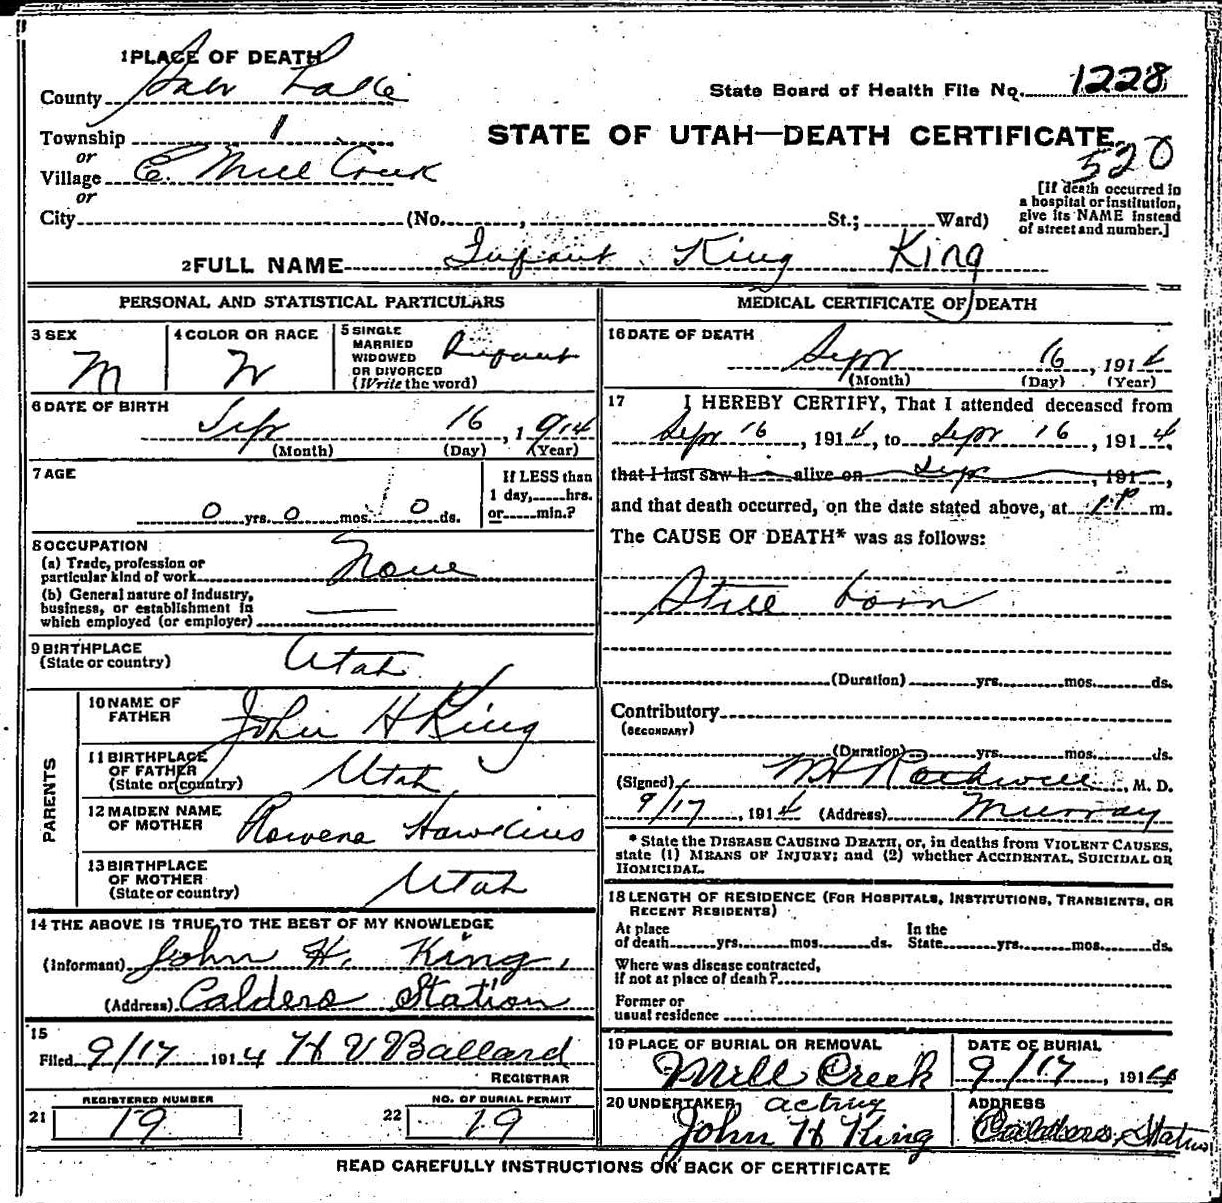 1 PLACE OF DEATH
County Salt Lake
State Board of Health File No. 1228
Township 1
STATE OF UTAH—DEATH CERTIFICATE
520
or
Village E. Mill Creek
or
City (No. , St.; Ward)
[If death occurred in
a hospital or institution,
give its NAME instead
of street and number.]
2 FULL NAME Infant King King
PERSONAL AND STATISTICAL PARTICULARS
3 SEX
M
4 COLOR OR RACE
W
5 SINGLE
MARRIED
WIDOWED
OR DIVORCED
(Write the word)
Infant
6 DATE OF BIRTH
Sept 16, 1914
(Month) (Day) (Year)
7 AGE
0 yrs. 0 mos. 0 ds.
If LESS than
1 day, hrs.
or min.?
8 OCCUPATION
(a) Trade, profession or
particular kind of work None
(b) General nature of industry,
business, or establishment in
which employed (or employer)
9 BIRTHPLACE
(State or country) Utah
PARENTS
10 NAME OF
FATHER John H King
11 BIRTHPLACE
OF FATHER
(State or country) Utah
12 MAIDEN NAME
OF MOTHER Rowena Hawkins
13 BIRTHPLACE
OF MOTHER
(State or country) Utah
14 THE ABOVE IS TRUE TO THE BEST OF MY KNOWLEDGE
(Informant) John H. King,
(Address) Calders Station
15
Filed 9/17 1914 H V Ballard
REGISTRAR
21 REGISTERED NUMBER
19
22 NO. OF BURIAL PERMIT
19
MEDICAL CERTIFICATE OF DEATH
16 DATE OF DEATH
Sept 16, 1914
(Month) (Day) (Year)
17 I HEREBY CERTIFY, That I attended deceased from
Sept 16, 1914, to Sept 16, 1914
that I last saw h alive on Sept, 191 ,
and that death occurred, on the date stated above, at 1 P m.
The CAUSE OF DEATH* was as follows:
Still born
(Duration) yrs. mos. ds.
Contributory
(SECONDARY)
(Duration) yrs. mos. ds.
(Signed) W H Rothwell, M. D.
9/17, 1914 (Address) Murray
* State the DISEASE CAUSING DEATH, or, in deaths from VIOLENT CAUSES,
state (1) MEANS OF INJURY; and (2) whether ACCIDENTAL, SUICIDAL OR
HOMICIDAL.
18 LENGTH OF RESIDENCE (FOR HOSPITALS, INSTITUTIONS, TRANSIENTS, OR
RECENT RESIDENTS)
At place In the
of death yrs. mos. ds. State yrs. mos. ds.
Where was disease contracted,
if not at place of death?
Former or
usual residence
19 PLACE OF BURIAL OR REMOVAL
Mill Creek
DATE OF BURIAL
9/17, 1914
20 UNDERTAKER acting
John H King
ADDRESS
Calders Station
READ CAREFULLY INSTRUCTIONS ON BACK OF CERTIFICATE